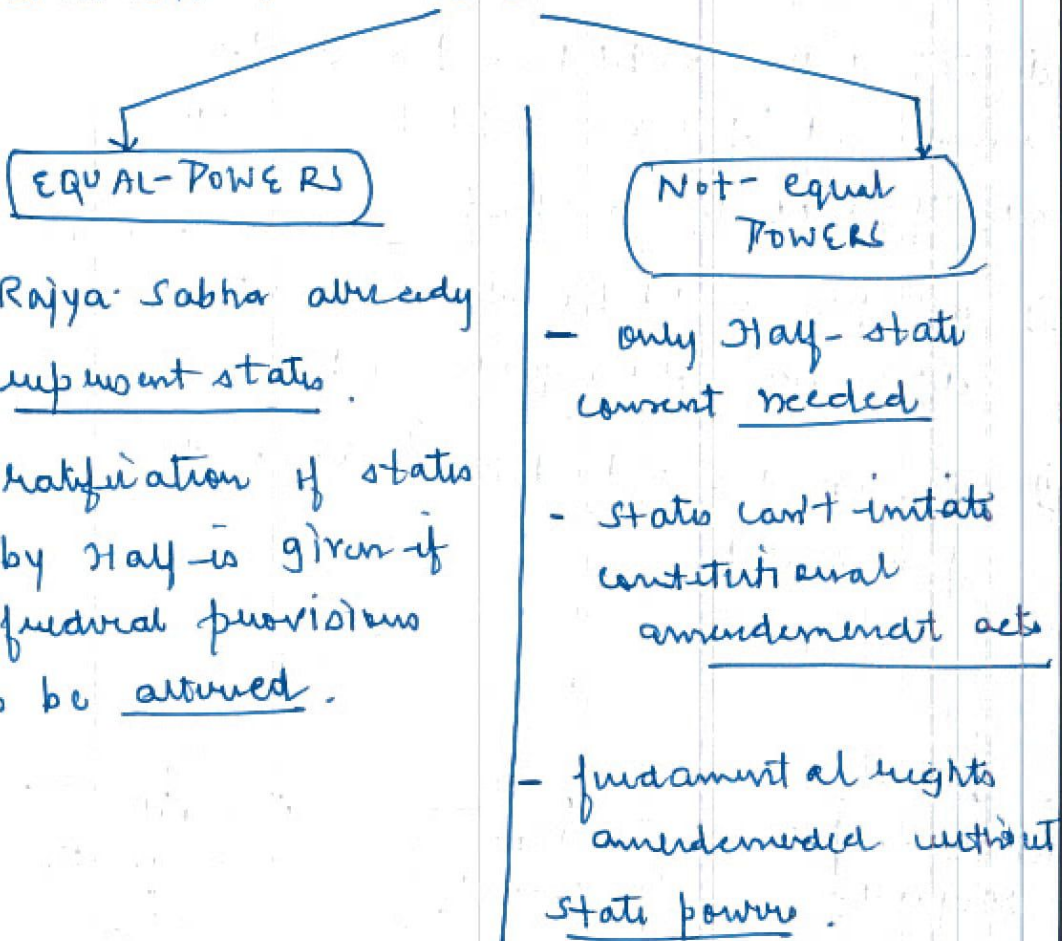 EQUAL-POWERS
Rajya Sabha already
represent states.
ratification of states
by Half is given if
fedral provisions
to be altured.
Not-equal
POWERS
- only Half-state
consent needed
- states can't intiate
contitutional
amendemendt acts
- fundamental rights
amendemended without
state powers.